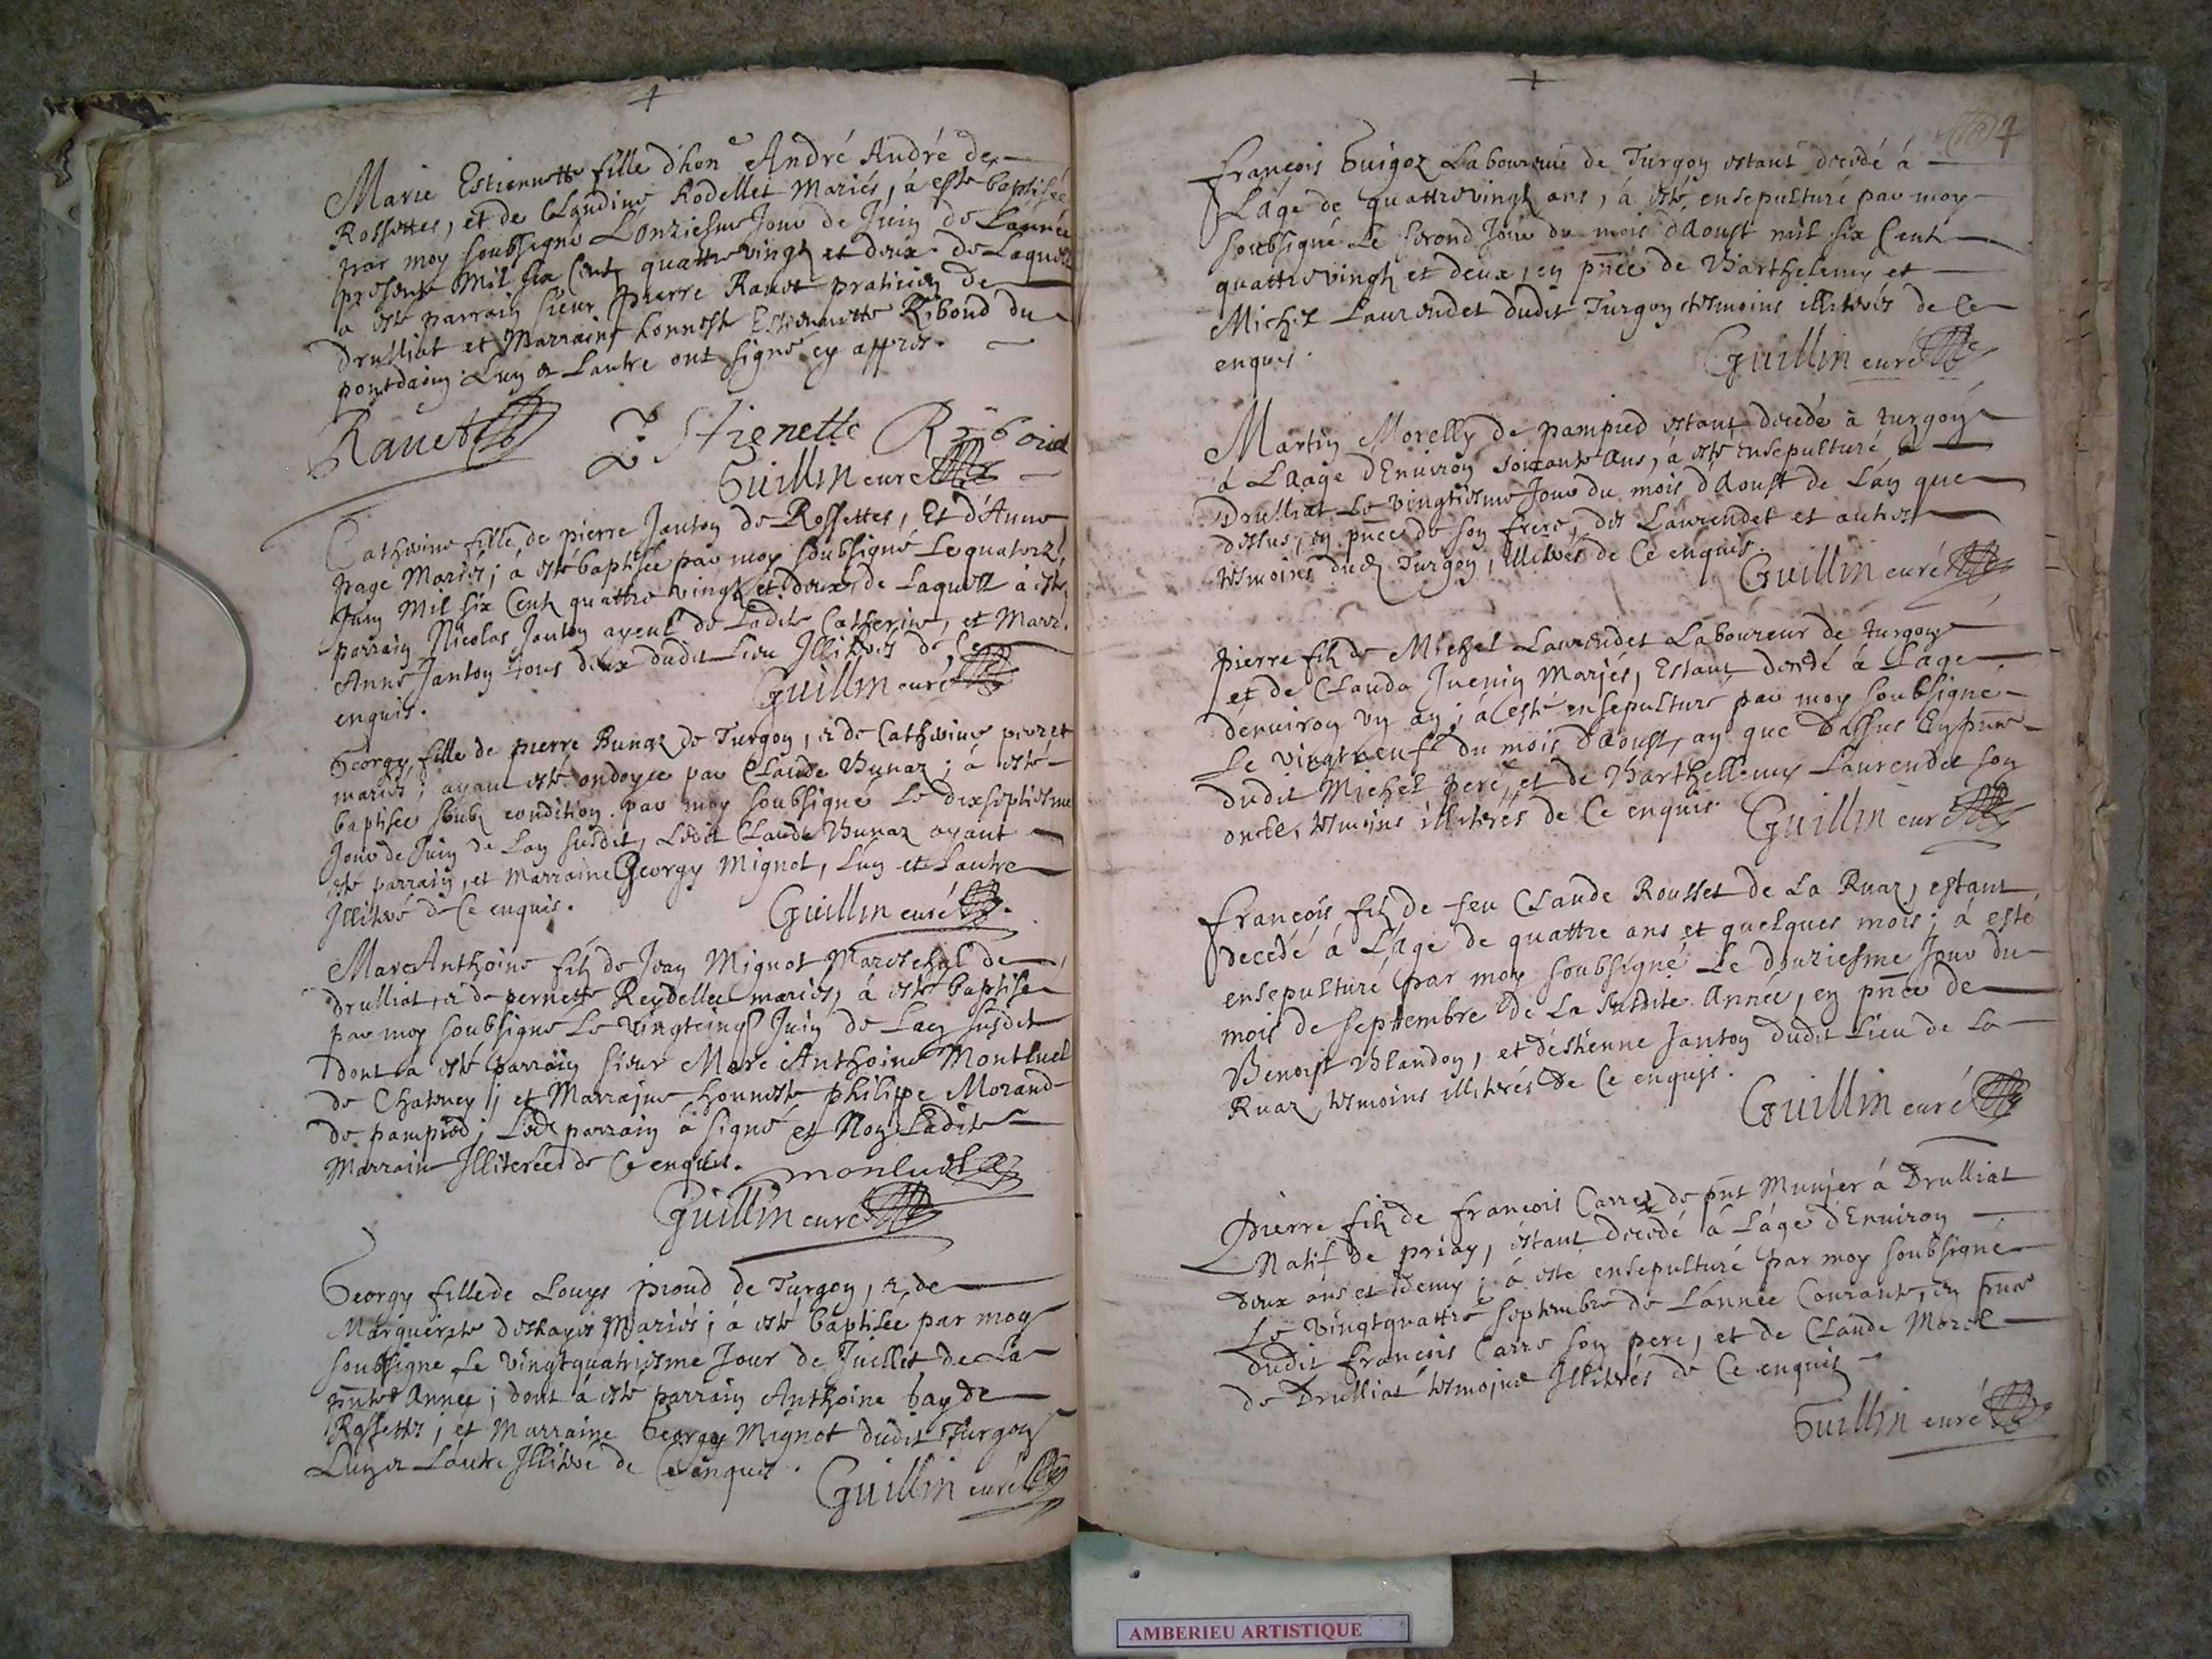 Marie Estiennette fille d'hon.e André André de
Rossettes, et de Claudine Rodellet Mariés, à esté baptisée
par moy soubsigné L'onziesme Jour de Juin de L'année
presente Mil six Centz quattrevingtz et deux. de Laquelle
a esté parrain sieur pierre Rauet praticien de
Drulliat et Marraine honneste Estiennette Ribond du
pontdain. Lun et Lautre ont signé cy appres.
Rauet Etienette Riboud
Guillin curé
Catherine fille de pierre Janton de Rossettes, Et d'Anne
page Mariés; à esté baptisée par moy soubsigné Le quatorze
Juin Mil six Centz quattre vingtz et deux, de Laquelle à esté
parrain Nicolas Janton ayeul de Ladite Catherine, et Marr.
Anne Janton tous deux dudit Lieu Illiterés de Ce
enquis. Guillin curé
Georgy fille de pierre Bunaz de Turgon, & de Catherine
mariés; ayant esté ondoyee par Claude Bunaz; à esté
baptisee soubz condition par moy soubsigné Le dixseptiesme
Jour de Juin de Lan susdit, Ledit Claude Bunaz ayant
esté parrain, et marraine Georgy Mignot, Lun et Lautre
Illiteré de Ce enquis. Guillin curé
Marc Anthoine filz de Jean Mignot Mareschal de
Drulliat, & de pernette Reydellet mariés, à esté baptisé
par moy soubsigné Le vingtcinq Juin de Lan susdit
dont a esté parrain sieur Marc Anthoine Montluel
de Chateney; et Marraine honneste philippe Morand
de pampied; Ledit parrain à signé et Non Ladite
Marraine Illiteree de Ce enquise. monluel
Guillin curé
Georgy fille de Louys pioud de Turgon, & de
Marguerite deshayes Mariés; à esté baptisée par moy
soubsigné Le vingtquatriesme Jour de Juillet de La
pnte Année; dont à esté parrain Anthoine bay de
Rossettes; et Marraine Georgy Mignot dudit Turgon
Lun & Lautre Illiteré de Ce enquis. Guillin curé
4
francois Guigoz Laboureur de Turgon estant decedé à
L'age de quattrevingtz ans, à esté ensepulturé par moy
soubsigné Le second Jour du mois d'Aoust mil six Centz
quattrevingtz et deux, en pnce de Barthelemy et
Michel Laurendet dudit Turgon tesmoins illiterés de Ce
enquis. Guillin curé
Martin Morelly de pampied estant decedé à turgon
à L'Aage d'Enuiron soixante Ans, à esté Ensepulturé à
Drulliat Le vingtiesme Jour du mois d'Aoust de L'an que
dessus, en pnce de son frere, des Laurendet et autres
tesmoins dud. Turgon, Illiterés de Ce enquis.
Guillin curé
pierre filz de Michel Laurendet Laboureur de turgon
et de Clauda Juenin Mariés, Estant decedé à L'age
d'enuiron un an; à esté ensepulturé par moy soubsigné
Le vingtneuf du mois d'Aoust, an que dessus En pnce
dudit Michel peré, et de Barthellemy Laurendet son
oncle, tesmoins illiterés de Ce enquis. Guillin curé
francois filz de feu Claude Rousset de La Ruaz, estant
decedé à L'age de quattre ans et quelques mois; à esté
ensepulturé par moy soubsigné Le douziesme Jour du
mois de septembre de La susdite Année, en pnce de
Benoist Blandon, et d'estienne Janton dudit Lieu de La
Ruaz, tesmoins illiterés de Ce enquis.
Guillin curé
pierre filz de francois Carrez de pnt Munier à Drulliat
Natif de priay, estant decedé à L'age d'Enuiron
deux ans et demy; à esté ensepulturé par moy soubsigné
Le vingtquattre septembre de L'année Courante, en pnce
dudit francois Carre son pere, et de Claude Morel
de Drulliat tesmoins Illiterés de Ce enquis
Guillin curé
AMBERIEU ARTISTIQUE